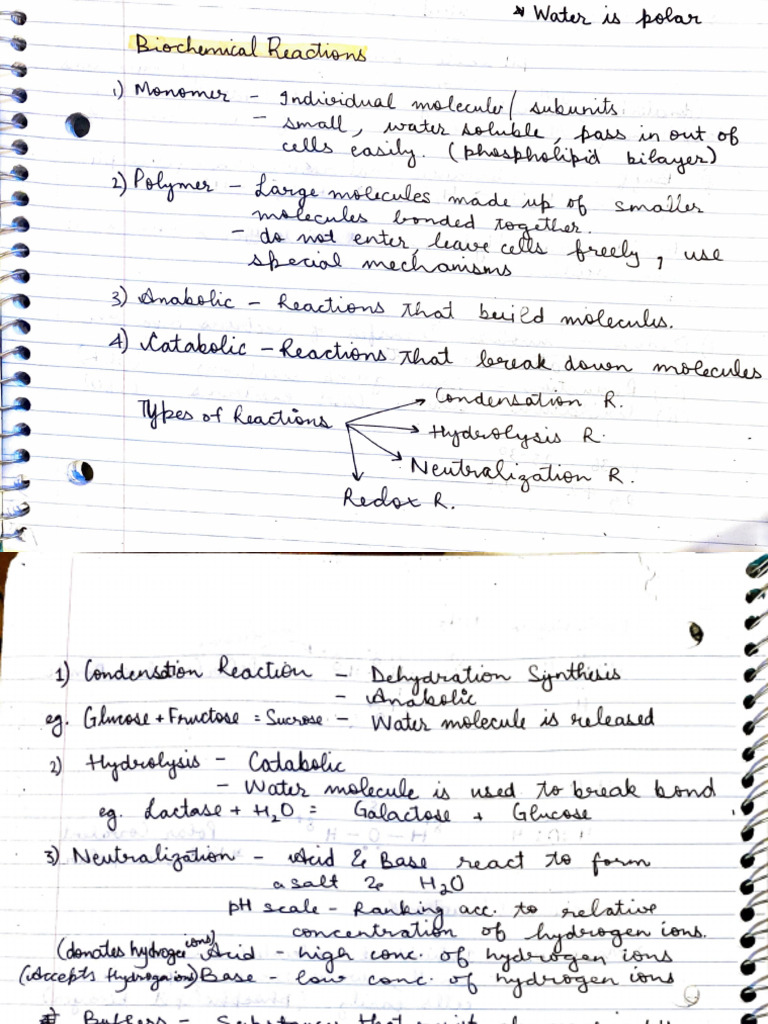 * Water is polar
Biochemical Reactions
1) Monomer - Individual molecules/ subunits
- small, water soluble, pass in out of
cells easily. (phospholipid bilayer)
2) Polymer - Large molecules made up of smaller
molecules bonded together.
- do not enter, leave cells freely, use
special mechanisms
3) Anabolic - Reactions that build molecules.
4) Catabolic - Reactions that break down molecules
Types of Reactions
Condensation R.
Hydrolysis R.
Neutralization R.
Redox R.
1) Condensation Reaction - Dehydration Synthesis
- Anabolic
eg. Glucose + Fructose = Sucrose - Water molecule is released
2) Hydrolysis - Catabolic
- Water molecule is used to break bond
eg. Lactase + H₂O = Galactose + Glucose
3) Neutralization - Acid & Base react to form
a salt & H₂O
pH scale - Ranking acc. to relative
concentration of hydrogen ions.
(donates hydrogen ions) Acid - high conc. of hydrogen ions
(Accepts Hydrogen ions) Base - low conc. of hydrogen ions
Buffers - Substances that